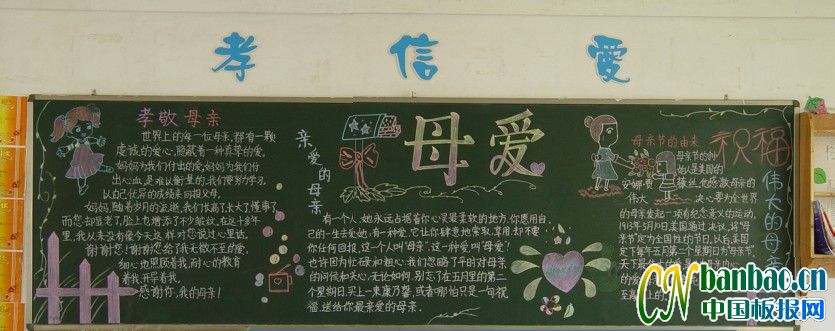 孝 信 爱
孝敬母亲
世界上的每一位母亲,都有一颗
虔诚的爱心,隐藏着一种真挚的爱。
妈妈为我们付出的爱,妈妈为我们付
出心血,是难以衡量的,我们要努力学习,
以自己优异的成绩来回报父母。
妈妈,随着岁月的流逝,我们长高了,长大了,懂事了,
而您却更老了,脸上也增添了不少皱纹,在这十多年
里,我从来没有像今天这样对您说过心里话。
谢谢您!谢谢您给了我无微不至的爱,
细心地照顾着我,耐心的教育
着我,开导着我,
感谢你,我的母亲!
亲爱的母亲
母爱
有一个人,她永远占据着你心灵最柔软的地方,你愿用自
己的一生去爱她,有一种爱,它让你肆意地索取、享用,却不要
你任何回报,这一个人叫“母亲”,这一种爱,叫“母爱”!
也许因为忙碌和粗心;我们忽略了平时对母亲
的问候和关心,无论如何,别忘了在五月里的第二
个星期日,买上一束康乃馨,或者哪怕只是一句祝
福,送给你最亲爱的母亲。
母亲节的由来
母亲节的创
始人是美国的
安娜·贾
薇丝,他感激母亲的
伟大,
决心要为全世界
的母亲发起一项有纪念意义的运动,
1913年5月10日,美国通过决议,将“母
亲节”定为全国性的节日,以后,美国
定下每年五月第一个星期日为母亲节。
天下
祝福
伟大的母亲
CN banbao.cn
中国板报网